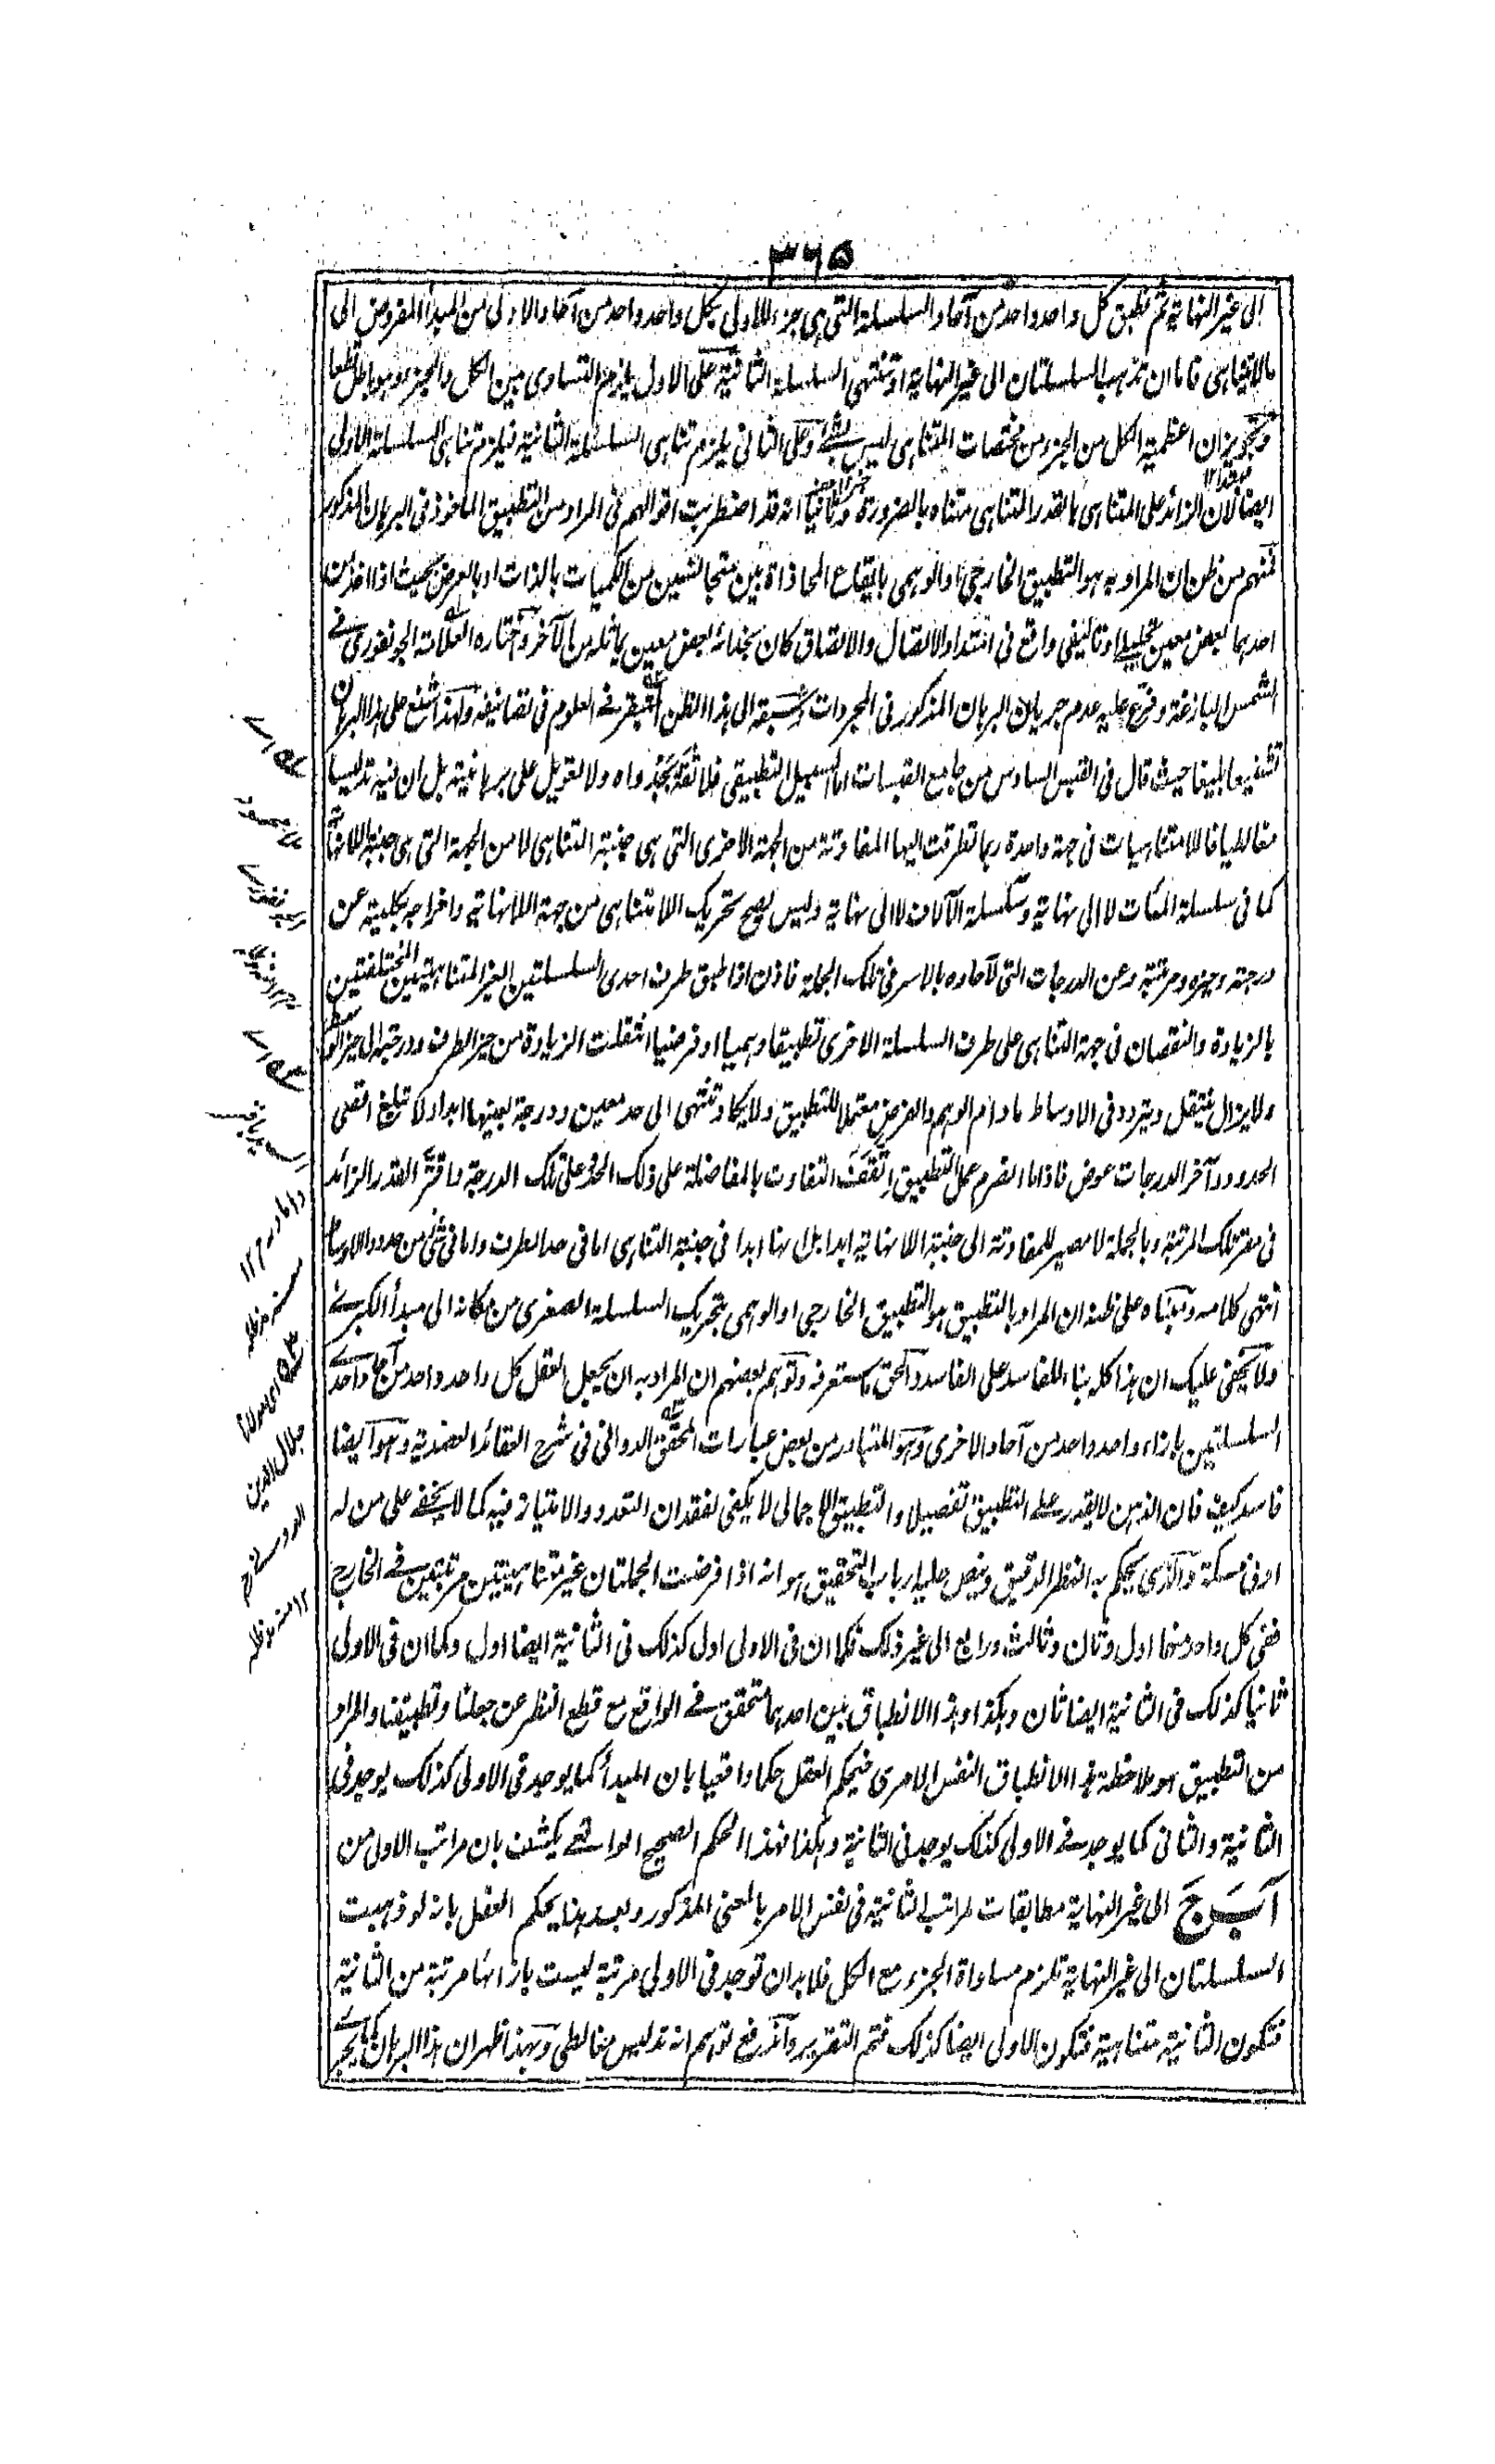 ٣٦٥
الى غير النهاية ثم نطبق كل واحد واحد من آحاد السلسلة التي هي جزء للاولى بكل واحد واحد من آحاد الاولى من المبدأ المفروض الى
مالا يتناهى فاما ان تذهب السلسلتان الى غير النهاية او تنتهى السلسلة الثانية على الاول يلزم التساوى بين الكل والجزء وهو باطل قطعا
وتجويز ان اعظمية الكل من الجزء من مختصات المتناهى ليس بشئ وعلى الثانى يلزم تناهى السلسلة الثانية فيلزم تناهى السلسلة الاولى
ايضا لان الزائد على المتناهى بالقدر المتناهى متناه بالضرورة وثانيا انه قد اضطربت اقوالهم فى المراد من التطبيق الماخوذ فى البرهان المذكور
فمنهم من ظن ان المراد به هو التطبيق الخارجى او الوهمى بايقاع المحاذاة بين متجانسين من الكميات بالذات او بالعرض بحيث اذا اخذ من
احدهما بعض معين تحليلى او تاليفى واقع فى امتداد الاتصال والاتساق كان بحذائه بعض معين يماثله من الآخر واختاره العلامة الجونفورى فے
الشمس البازغة وفرع عليه عدم جريان البرهان المذكور فى المجردات وسبقه الى هذا الظن المتبقر فے العلوم فى تصانيفه ولهذا شنع على هذا البرهان
تشنيعا بليغا حيث قال فى القبس السادس من جامع القبسات اما السبيل التطبيقى فلا ثقة بجدواه ولا تعويل على برهانيته بل ان فيه تدليسا
مغالطيا فاللامتناهيات فى جهة واحدة ربما تطرقت اليها المفاوتة من الجهة الاخرى التى هى جنبة التناهى لا من الجهة التى هى جنبة اللانهاية
كما فى سلسلة المئات لا الى نهاية وسلسلة الآلاف لا الى نهاية وليس يصح تحريك اللامتناهى من جهة اللانهاية واخراجه بكليته عن
درجته وحيزه ومرتبته وعن الدرجات التى لآحاده بالاسر فى تلك الجهة فاذن اذا طبق طرف احدى السلسلتين الغير المتناهيتين المختلفتين
بالزيادة والنقصان فى جهة التناهى على طرف السلسلة الاخرى تطبيقا وهميا او فرضيا انتقلت الزيادة من حيز الطرف ودرجته الى حيز الوسط
ولا يزال ينتقل ويتردد فى الاوساط مادام الوهم والفرض معتملا للتطبيق ولا يكاد تنتهى الى حد معين ودرجة بعينها ابدا ولا تبلغ اقصى
الحدود وآخر الدرجات عوض فاذا ما انصرم عمل التطبيق التفاوت بالمفاضلة على ذلك الحد وعلى تلك الدرجة واقر القدر الزائد
فى مقر تلك المرتبة وبالجملة لا مصير للمفاوتة الى جنبة اللانهاية ابدا بل انها ابدا فى جنبة التناهى اما فى حد الطرف واما فى شئ من حدود الاوساط
انتهى كلامه ومبناه على ظنه ان المراد بالتطبيق هو التطبيق الخارجى او الوهمى بتحريك السلسلة الصغرى من مكانه الى مبدأ الكبرے
ولا يخفى عليك ان هذا كله بناء للفاسد على الفاسد والحق ما ستعرفه وتوهم بعضهم ان المراد به ان يجعل العقل كل واحد واحد من آحاد احدے
السلسلتين بازاء واحد واحد من آحاد الاخرى وهو المتبادر من بعض عبارات المحقق الدوانى فى شرح العقائد العضدية وهو ايضا
فاسد كيف فان الذهن لا يقدر على التطبيق تفصيلا والتطبيق الاجمالى لا يكفى لفقدان التعدد والامتياز فيه كما لا يخفے على من له
ادنى مسكة والذى يحكم به النظر الدقيق وينص عليه ارباب التحقيق هو انه اذا فرضت الجملتان غير متناهيتين مرتبتين فے الخارج
ففى كل واحد منهما اول وثان وثالث ورابع الى غير ذلك فكما ان فى الاولى اول كذلك فى الثانية ايضا اول وكما ان فى الاولى
ثانيا كذلك فى الثانية ايضا ثان وهكذا وهذا الانطباق بين احدهما متحقق فے الواقع مع قطع النظر عن جعلنا وتطبيقنا والمراد
من التطبيق هو ملاحظة هذا الانطباق النفس الامرى فيحكم العقل حكما واقعيا بان المبدأ كما يوجد فى الاولى كذلك يوجد فى
الثانية والثانى كما يوجد فے الاولى كذلك يوجد فى الثانية وهكذا فهذا الحكم الصحيح الواقعے يكشف بان مراتب الاولى من
آ بَ جَ الى غير النهاية مطابقات لمراتب الثانية فى نفس الامر بالمعنى المذكور وبعد هذا يحكم العقل بانه لو ذهبت
السلسلتان الى غير النهاية تلزم مساواة الجزء مع الكل فلابد ان توجد فى الاولى مرتبة ليست بازائها مرتبة من الثانية
فتكون الثانية متناهية فتكون الاولى ايضا كذلك فتم التقرير واندفع توهم انه تدليس مغالطى وبهذا ظهر ان هذا البرهان كما يجرے
اے
السيد باقر
داماد ١٢
منه مد ظله
اى مولانا
جلال الدين
الدوانى
١٢ منه مد ظله